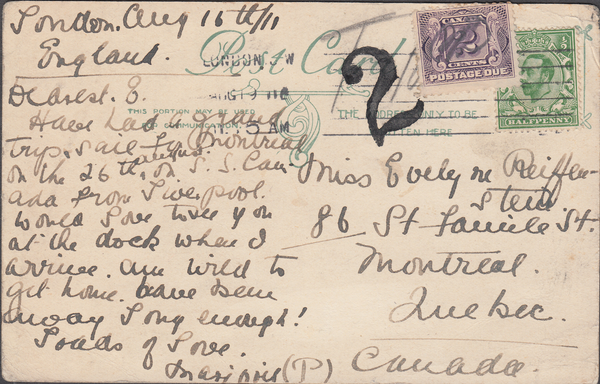 London. Aug 16th/11
England.
Dearest. E.
Have had a grand
trip, sail for Montreal
on the 26th, August on S. S. Can-
ada from Liverpool.
Would love to see you
at the dock when I
arrive. am wild to
get home. have been
away long enough!
Loads of Love.
Marjorie (P)
Post Card
THIS PORTION MAY BE USED
FOR COMMUNICATION
THE ADDRESS ONLY TO BE
WRITTEN HERE
LONDON
AUG 19 11
5 AM
2
CANADA
2 CENTS 2
POSTAGE DUE
HALFPENNY
Miss Evelyne Reiffen-
stein
86 St Famille St.
Montreal.
Quebec.
Canada.